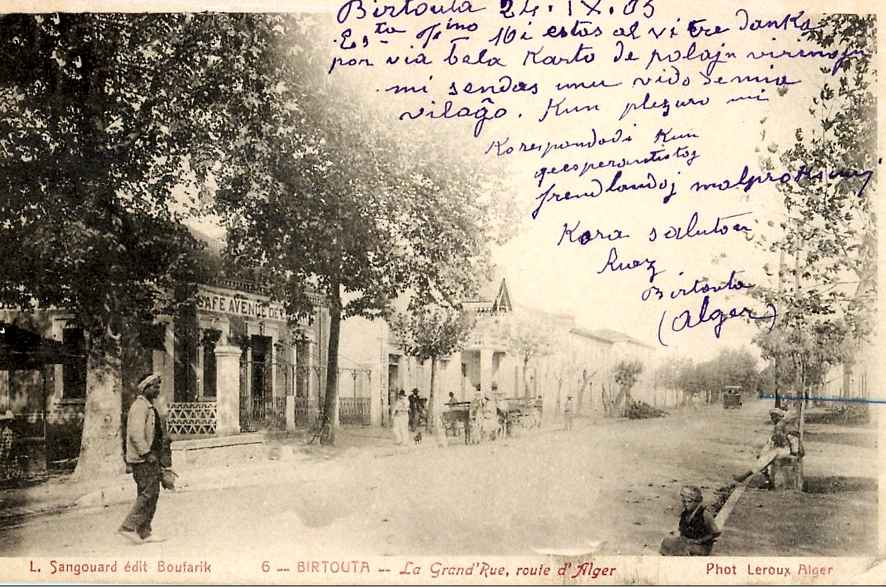 Birtouta 24. IX. 05
Esta Fino Mi estos al vi tre danka
por via bela Karto de polajn virinojn
mi sendas unu vido de mia
vilaĝo. Kun plezuro mi
Korespondadi Kun
geesperantistoj
fremdlandoj malproksimaj
Kora saluton
Ruoz
Birtouta
(Alger)
CAFE AVENUE DE
L. Sangouard édit Boufarik
6 -- BIRTOUTA -- La Grand'Rue, route d'Alger
Phot Leroux Alger